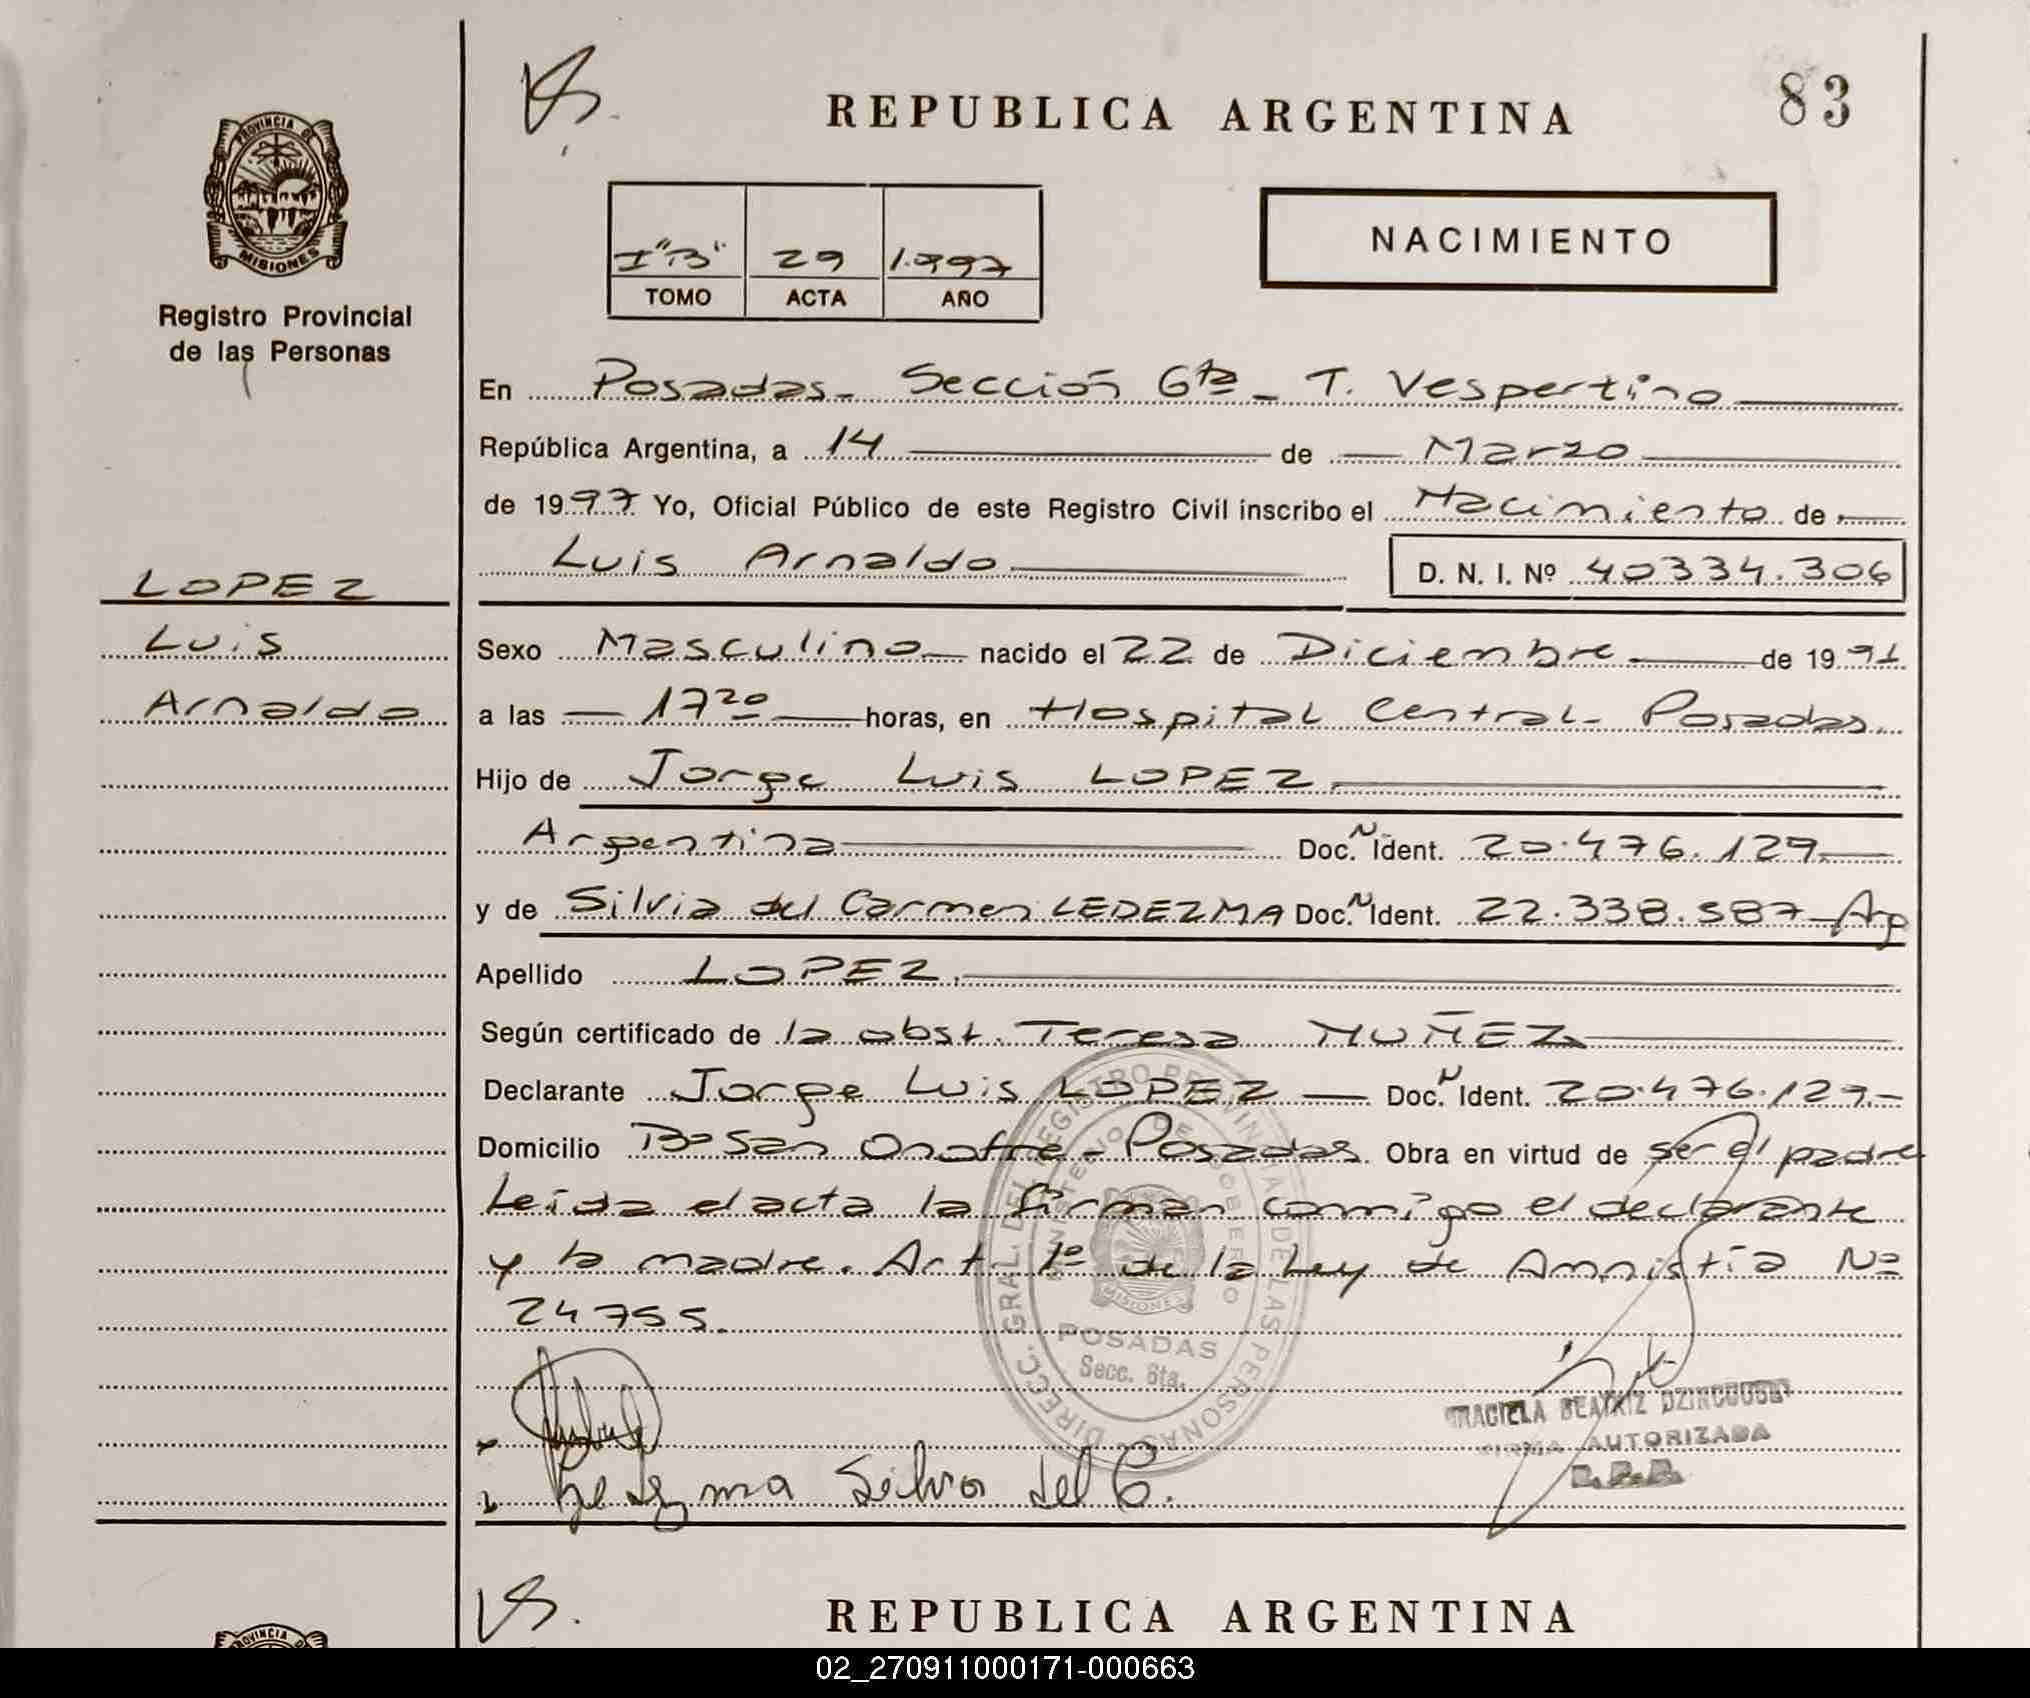 83
REPUBLICA ARGENTINA
PROVINCIA DE
MISIONES
Registro Provincial
de las Personas
I "B" 29 1.997
TOMO ACTA AÑO
NACIMIENTO
En Posadas - Sección 6ta - T. Vespertino
República Argentina, a 14 de Marzo
de 1997 Yo, Oficial Público de este Registro Civil inscribo el Nacimiento de
Luis Arnaldo D. N. I. Nº 40334.306
LOPEZ
Luis
Arnaldo
Sexo Masculino nacido el 22 de Diciembre de 1991
a las 17 20 horas, en Hospital Central - Posadas.
Hijo de Jorge Luis LOPEZ
Argentina Doc. N Ident. 20.476.129
y de Silvia del Carmen LEDEZMA Doc. N Ident. 22.338.587 Arg
Apellido LOPEZ.
Según certificado de la obst. Teresa MUÑEZ
Declarante Jorge Luis LOPEZ Doc. N Ident. 20.476.129.-
Domicilio Bº San Onofre - Posadas Obra en virtud de ser el padre
Leida el acta la firman conmigo el declarante
y la madre. Art. 1º de la Ley de Amnistía Nº
24755.
DIRECC. GRAL. DEL REGISTRO PROVINCIAL DE LAS PERSONAS
MINISTERIO DE GOBIERNO
MISIONES
POSADAS
Secc. 6ta.
GRACIELA BEATRIZ
FIRMA AUTORIZADA
Ledezma Silvia del C.
REPUBLICA ARGENTINA
PROVINCIA D
02_270911000171-000663